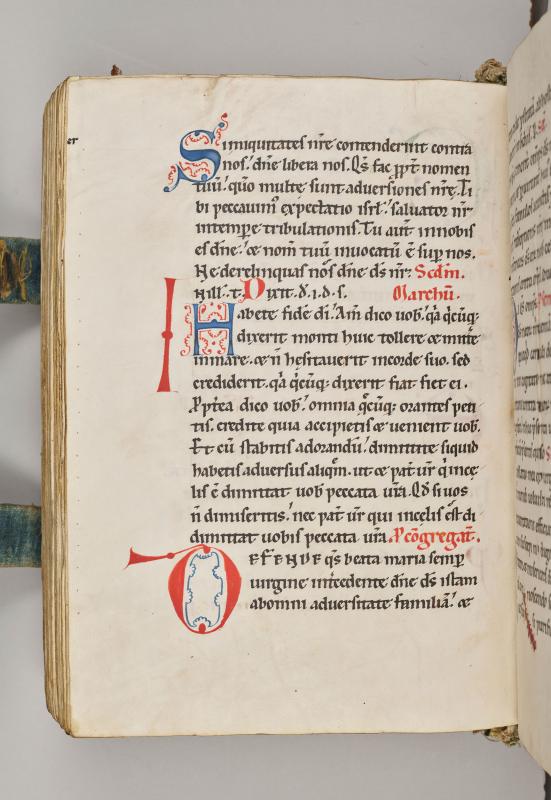 er
Si iniquitates nr̄e contenderint contra
nos. dn̄e libera nos. Qs̄ fac ꝓpt nomen
tuū. quō multe sunt aduersiones nr̄e. Ti
bi peccauim⁹ expectatio isrl̄. saluator nr̄
intempe tribulationis. Tu aut̄ innobis
es dn̄e. ⁊ nom̄ tuū inuocatū ē sup nos.
Ne derelinquas nos dn̄e ds̄ nr̄. Scdm̄.
In ill̄. t. Dixit. d. i. d. s. Marchū.
Habete fidē di. Am̄ dico uob. qa qcūq;
dixerit monti huic tollere ⁊ mitte
inmare. ⁊ n̄ hesitauerit incorde suo. sed
crediderit. qa qcūq; dixerit fiat fiet ei.
Propt̄ea dico uob. omnia qcūq; orantes peti
tis. credite quia accipietis ⁊ uenient uob.
Et cū stabitis adorandū. dimittite siquid
habetis aduersus aliqm̄. ut ⁊ pat̄ ur̄ q ince
lis ē dimittat uob peccata ur̄a. Qd si uos
n̄ dimiseritis. nec pat̄ ur̄ qui incelis est. di
mittat uobis peccata ur̄a. P cōgregat̄.
DEFENDE qs̄ beata maria semp
uirgine intcedente dn̄e ds̄ istam
abomni aduersitate familiā. ⁊